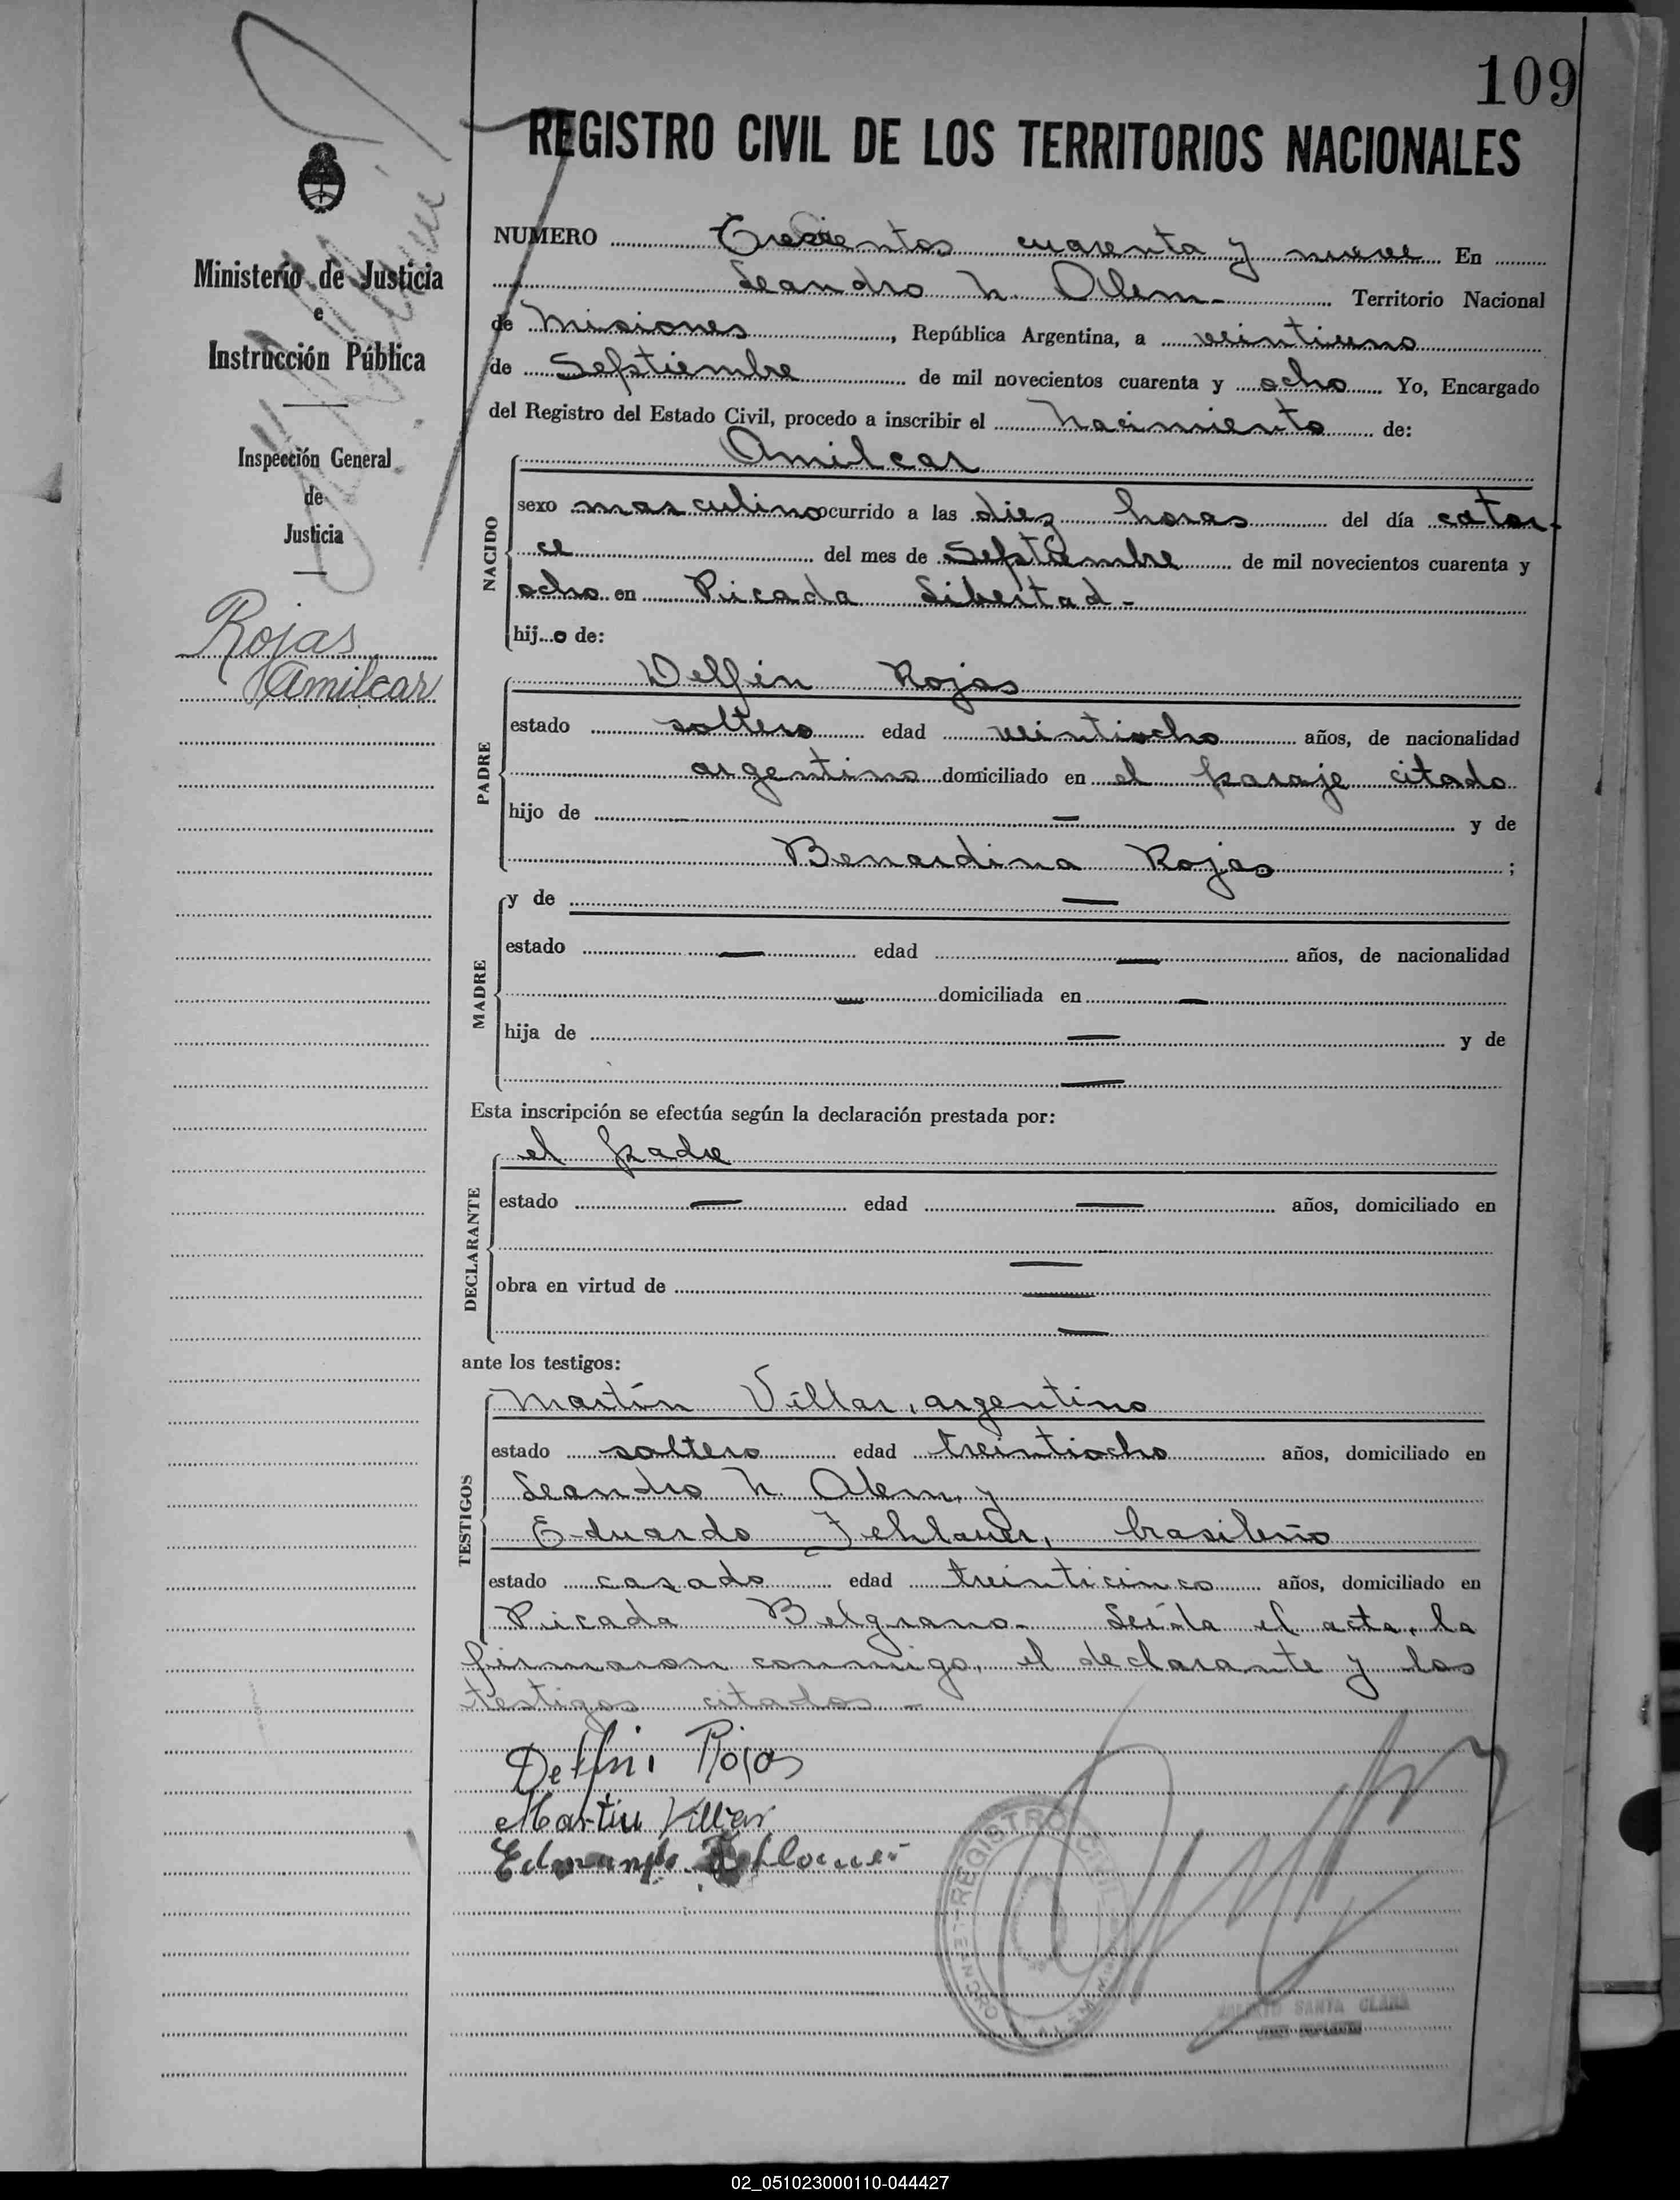 109
REGISTRO CIVIL DE LOS TERRITORIOS NACIONALES
Ministerio de Justicia
e
Instrucción Pública
Inspección General
de
Justicia
Rojas
Amilcar
NUMERO Trescientos cuarenta y nueve En
Leandro N. Alem - Territorio Nacional
de Misiones, República Argentina, a veintiuno
de Septiembre de mil novecientos cuarenta y ocho Yo, Encargado
del Registro del Estado Civil, procedo a inscribir el Nacimiento de:
NACIDO
Amilcar
sexo masculino ocurrido a las diez horas del día cator-
ce del mes de Septiembre de mil novecientos cuarenta y
ocho en Picada Libertad -
hij...o de:
PADRE
Delfin Rojas
estado soltero edad veintiocho años, de nacionalidad
argentino domiciliado en el paraje citado
hijo de — y de
Benardina Rojas ;
MADRE
y de —
estado — edad — años, de nacionalidad
— domiciliada en —
hija de — y de
—
Esta inscripción se efectúa según la declaración prestada por:
DECLARANTE
el padre
estado — edad — años, domiciliado en
—
obra en virtud de —
—
ante los testigos:
TESTIGOS
Martín Villar, argentino
estado soltero edad treintiocho años, domiciliado en
Leandro N. Alem, y
Eduardo Fehlauer, brasileño
estado casado edad treinticinco años, domiciliado en
Picada Belgrano - Leída el acta, la
firmaron conmigo, el declarante y los
testigos citados -
Delfin Rojas
Martin Villar
REGISTRO CIVIL
SANTA CLARA
02_051023000110-044427